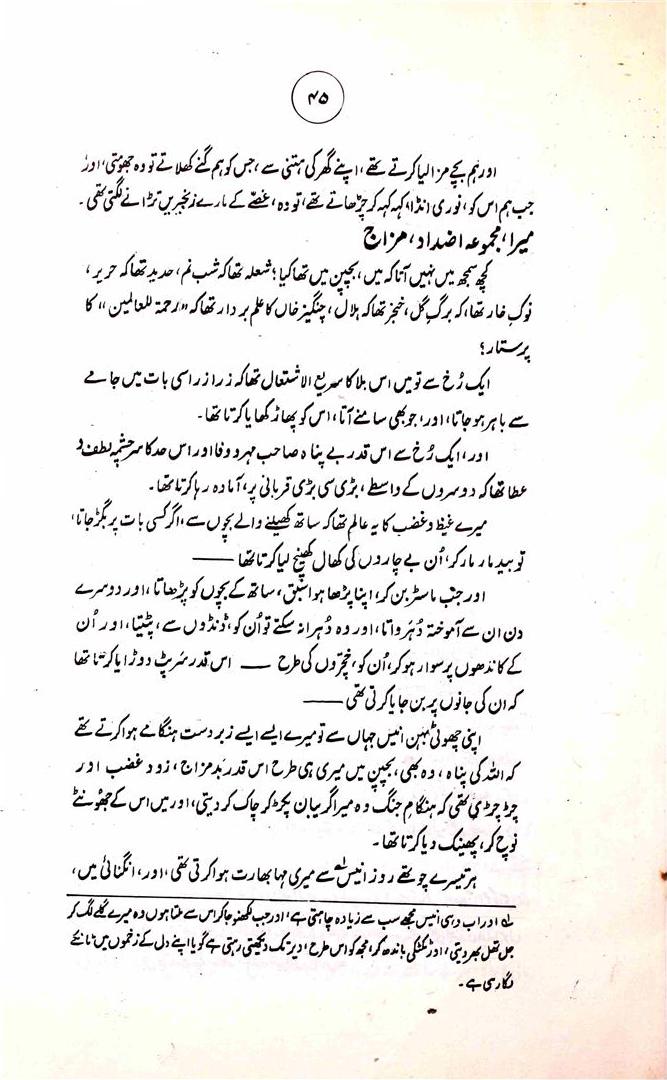 ۴۵
اور ہم بچے مزا لیا کرتے تھے، اپنے گھر کی ہتنی سے، جس کو ہم گنے کھلاتے تو وہ جھومتی، اور
جب ہم اس کو، نوری انڈا، کہہ کہہ کر چڑھاتے تھے، تو وہ، غصّے کے مارے زنجیریں تڑانے لگتی تھی۔
میرا، مجموعہ اضداد، مزاج
کچھ سمجھ میں نہیں آتا کہ میں، بچپن میں تھا کیا؛ شعلہ تھا کہ شبنم، حدید تھا کہ حریر،
نوکِ خار تھا، کہ برگِ گل، خنجر تھا کہ ہلال، چنگیز خاں کا علم بردار تھا کہ "رحمۃ للعالمین" کا
پرستار؟
ایک رُخ سے تو میں اس بلا کا سریع الاشتعال تھا کہ ذرا ذرا سی بات میں جامے
سے باہر ہو جاتا، اور، جو بھی سامنے آتا، اس کو پھاڑ کھایا کرتا تھا۔
اور، ایک رُخ سے اس قدر بے پناہ صاحب مہر و وفا اور اس حد کا سرچشمہ لطف و
عطا تھا کہ دوسروں کے واسطے، بڑی سی بڑی قربانی پر، آمادہ رہا کرتا تھا۔
میرے غیظ و غضب کا یہ عالم تھا کہ ساتھ کھیلنے والے بچوں سے، اگر کسی بات پر بگڑ جاتا،
تو بید مار مار کر، اُن بے چاروں کی کھال کھینچ لیا کرتا تھا ——
اور جب ماسٹر بن کر، اپنا پڑھا ہوا سبق، ساتھ کے بچوں کو پڑھاتا، اور دوسرے
دن ان سے آموختہ دُہرواتا، اور وہ دُہرا نہ سکتے تو اُن کو، ڈنڈوں سے، پٹیتا، اور اُن
کے کاندھوں پر سوار ہو کر، اُن کو، خچّروں کی طرح —— اس قدر سرپٹ دوڑایا کرتا تھا
کہ ان کی جانوں پر بن جایا کرتی تھی ——
اپنی چھوٹی بہن انیس جہاں سے تو میرے ایسے ایسے زبردست ہنگامے ہوا کرتے تھے
کہ اللہ کی پناہ، وہ بھی، بچپن میں میری ہی طرح اس قدر بد مزاج، زود غضب اور
چڑچڑی تھی کہ ہنگامِ جنگ وہ میرا گریبان پکڑ کر چاک کر دیتی، اور میں اس کے جھونٹے
نوچ کر، پھینک دیا کرتا تھا۔
ہر تیسرے چوتھے روز انیس ؂۱ سے میری مہا بھارت ہوا کرتی تھی، اور، انگنائی میں،
؂۱ اور اب وہی انیس مجھے سب سے زیادہ چاہتی ہے، اور جب لکھنؤ جا کر اس سے ملتا ہوں وہ میرے گلے لگ کر
جل تھل بھر دیتی، اور ٹکٹکی باندھ کر، مجھ کو اس طرح، دیر تک دیکھتی رہتی ہے گویا اپنے دل کے زخموں میں ٹانکے
لگا رہی ہے۔